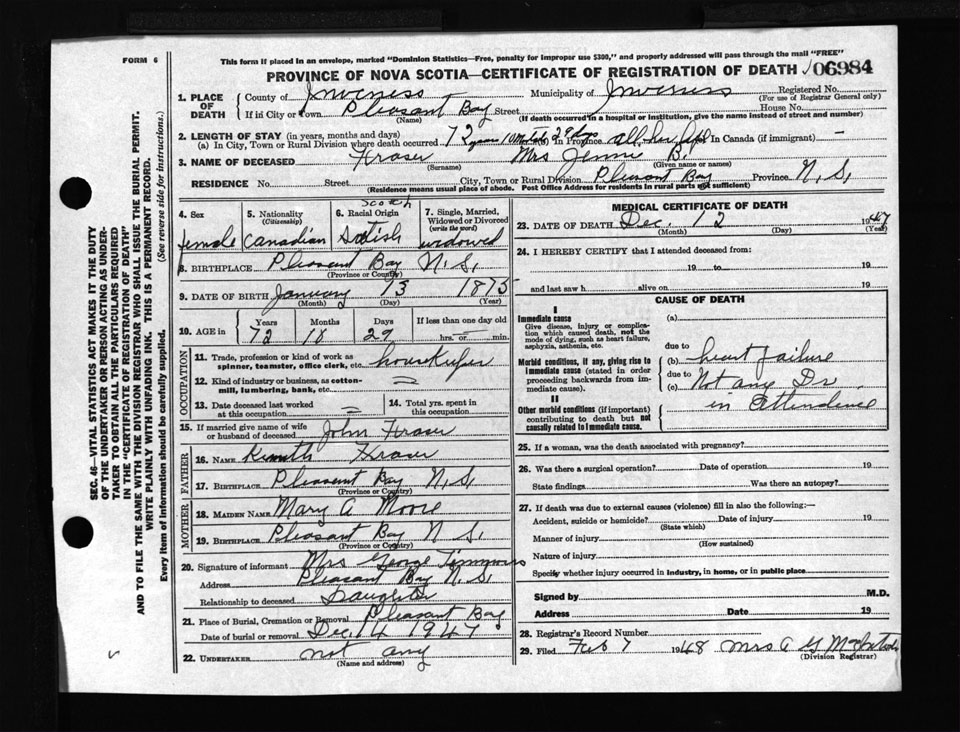 FORM 6
This form if placed in an envelope, marked "Dominion Statistics—Free, penalty for improper use $300," and properly addressed will pass through the mail "FREE"
PROVINCE OF NOVA SCOTIA—CERTIFICATE OF REGISTRATION OF DEATH 06984
1. PLACE OF DEATH
County of Inverness Municipality of Inverness Registered No.
(For use of Registrar General only)
If in City or Town Pleasant Bay Street House No.
(Name) (If death occurred in a hospital or institution, give the name instead of street and number)
2. LENGTH OF STAY (in years, months and days)
(a) In City, Town or Rural Division where death occurred 72 years 10 29 days In Province all her In Canada (if immigrant) —
3. NAME OF DECEASED Fraser Mrs Jennie B.
(Surname) (Given name or names)
RESIDENCE No. Street City, Town or Rural Division Pleasant Bay Province N.S.
(Residence means usual place of abode. Post Office Address for residents in rural parts not sufficient)
4. Sex
female
5. Nationality
(Citizenship)
Canadian
6. Racial Origin
Scotch
7. Single, Married, Widowed or Divorced
(write the word)
widowed
8. BIRTHPLACE Pleasant Bay N.S.
(Province or Country)
9. DATE OF BIRTH January 13 1875
(Month) (Day) (Year)
10. AGE in Years Months Days If less than one day
72 10 29 hrs. or min.
OCCUPATION
11. Trade, profession or kind of work as spinner, teamster, office clerk, etc. housekeeper
12. Kind of industry or business, as cotton-mill, lumbering, bank, etc. =
13. Date deceased last worked at this occupation =
14. Total yrs. spent in this occupation
15. If married give name of wife or husband of deceased John Fraser
FATHER
16. NAME Kenneth Fraser
17. BIRTHPLACE Pleasant Bay N.S.
(Province or Country)
MOTHER
18. MAIDEN NAME Mary A Moore
19. BIRTHPLACE Pleasant Bay N S.
(Province or Country)
20. Signature of informant Mrs George Timmons
Address Pleasant Bay N.S.
Relationship to deceased Daughter
21. Place of Burial, Cremation or Removal Pleasant Bay
Date of burial or removal Dec 14 1947
22. UNDERTAKER not any
(Name and address)
MEDICAL CERTIFICATE OF DEATH
23. DATE OF DEATH Dec. 12 1947
(Month) (Day) (Year)
24. I HEREBY CERTIFY that I attended deceased from:
19 to 19
and last saw h alive on 19
CAUSE OF DEATH
I
Immediate cause
Give disease, injury or complication which caused death, not the mode of dying, such as heart failure, asphyxia, asthenia, etc.
(a)
due to
Morbid conditions, if any, giving rise to immediate cause (stated in order proceeding backwards from immediate cause).
(b) heart failure
due to
(c) Not any Dr
in attendence
II
Other morbid conditions (if important) contributing to death but not causally related to immediate cause.
25. If a woman, was the death associated with pregnancy?
26. Was there a surgical operation? Date of operation 19
State findings Was there an autopsy?
27. If death was due to external causes (violence) fill in also the following:—
Accident, suicide or homicide? Date of injury 19
(State which)
Manner of injury
(How sustained)
Nature of injury
Specify whether injury occurred in industry, in home, or in public place
Signed by M.D.
Address Date 19
28. Registrar's Record Number
29. Filed Feb 7 1948 Mrs A G
(Division Registrar)
SEC. 46—VITAL STATISTICS ACT MAKES IT THE DUTY
OF THE UNDERTAKER OR PERSON ACTING AS UNDER-
TAKER TO OBTAIN ALL THE PARTICULARS REQUIRED
IN THE "CERTIFICATE OF REGISTRATION OF DEATH"
AND TO FILE THE SAME WITH THE DIVISION REGISTRAR WHO SHALL ISSUE THE BURIAL PERMIT.
WRITE PLAINLY WITH UNFADING INK. THIS IS A PERMANENT RECORD.
Every item of information should be carefully supplied. (See reverse side for instructions.)